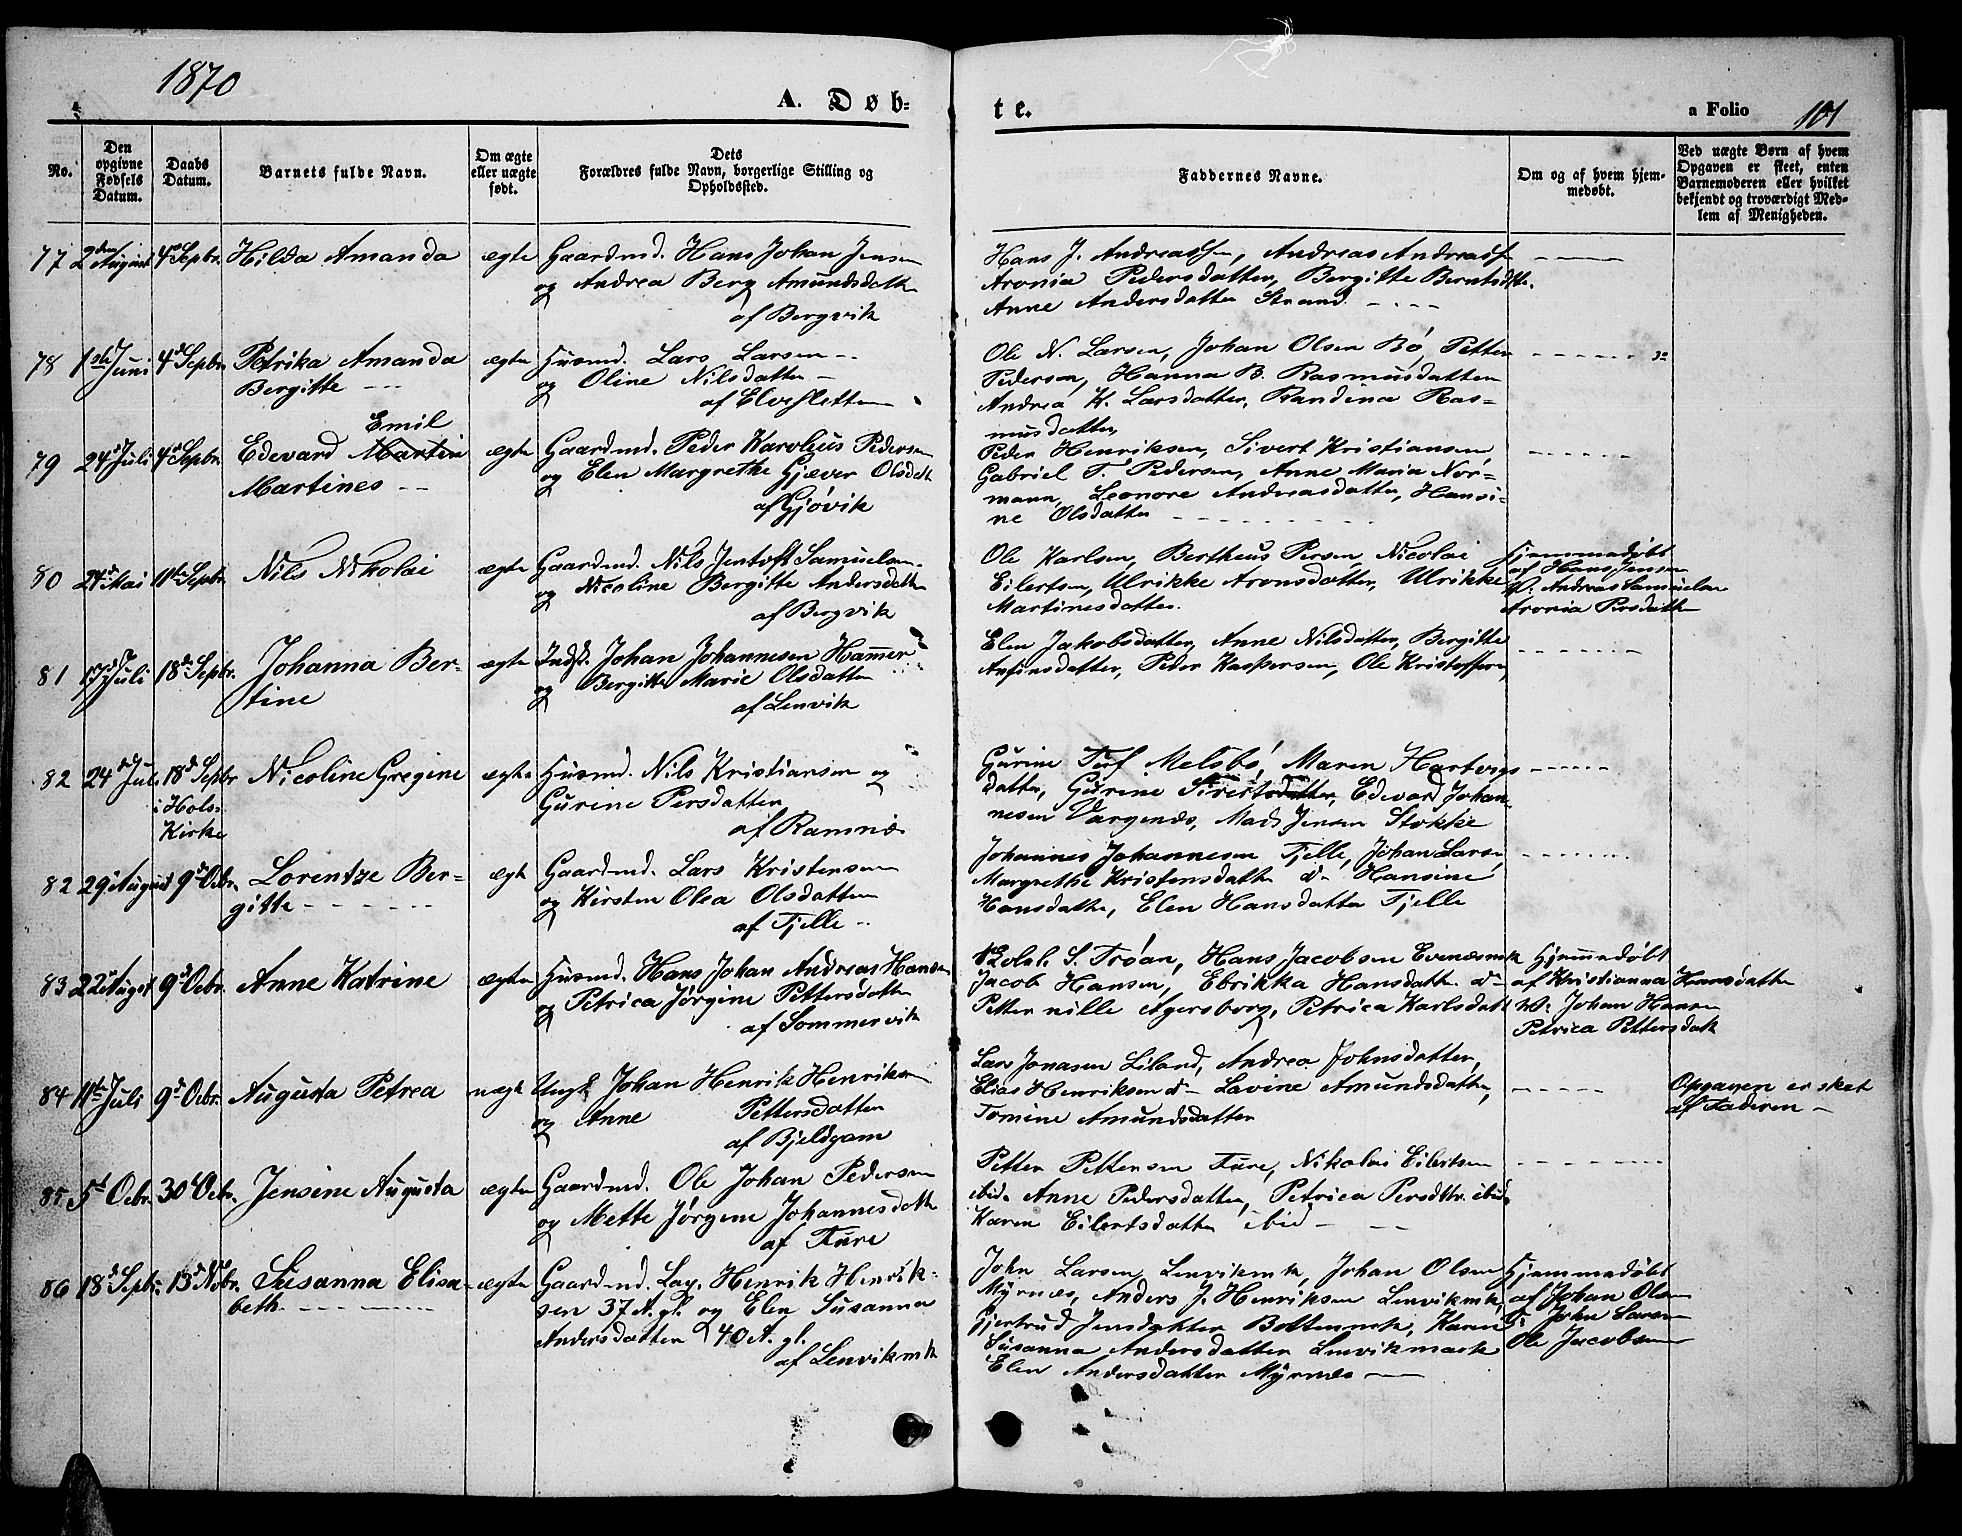 1870
A. Døb-
te.
a Folio 101
No.
Den opgivne Fødsels Datum.
Daabs Datum.
Barnets fulde Navn.
Om ægte eller uægte født.
Dets Forældres fulde Navn, borgerlige Stilling og Opholdssted.
Faddernes Navne.
Om og af hvem hjem-medøbt.
Ved uægte Børn af hvem Opgaven er skeet, enten Barnemoderen eller hvilket bekjendt og troværdigt Med-lem af Menigheden.
77 2den August 4de Sepbr. Hilda Amanda ægte Gaardmd. Hans Johan Jensen
og Andrea Berg Amundsdatt
af Bergvik
Hans J. Andreassen, Andreas Andreass
Aronia Pedersdatter, Bergitte Berntsdtr.
Anne Andersdatter Strand
78 1ste Juni 4de Sepbr. Petrika Amanda ægte Husmd. Lars Larsen
Bergitte og Oline Nilsdatter
af Elvesletten
Ole N. Larsen, Johan Olsen Bø, Petter
Pedersen, Hanna B. Rasmusdatter
Andrea K. Larsdatter, Randina Ras=
musdatter
79 24d Juli 4d Sepbr. Edevard Martin Emil ægte Gaardmd. Peder Karolius Pedersen
Martines og Elen Margrethe Gjæver Olsdatt
af Gjøvik
Peder Henriksen, Sivert Kristiansen,
Gabriel T. Pedersen, Anne Maria Nor-
mann, Leonore Andreasdatter, Hansi-
ne Olsdatter
80 Mai 11te Sepbr. Nils Nikolai ægte Gaardmd. Nils Jentoft Samuelsen
og Nicoline Bergitte Andersdatter
af Bergvik
Ole Karlsen, Bertheus Persen, Nicolai
Eilertsen, Ulrikke Aronsdatter, Ulrikke
Martinesdatter.
Hjemmedøbt
af Hans Jensen
V. Andreas Samuelsen
Aronia Persdatter
81 17d Juli 18de Sepbr. Johanna Ber- ægte Indst. Johan Johannesen Hamer
tine og Bergitte Marie Olsdatter
af Lenvik
Elen Jakobsdatter, Anne Nilsdatter, Bergitte
Anfinsdatter, Peder Kaspersen, Ole Kristoffersen,
82 24d Juli 18d Sepbr. Nicoline Gregine ægte Husmd. Nils Kristiansen og
i Hols Kirke
Gurine Persdatter
af Ramnes
Gurine Melsbø, Maren Hartvigs
datter, Gurine Sivertsdatter, Edevard Johan-
nesen Vargenæs, Mads Jensen Stokke
82 29d August 9d Ocbr. Lorentze Ber= ægt Gaardmd. Lars Kristensen
gitte og Kirsten Olea Olsdatter
af Tjelle
Johannes Johannesen Tjelle, Johan Larsen,
Margrethe Kristensdatter do Hansine
Hansdatter, Elen Hansdatter Tjelle
83 22d August 9d Ocbr. Anne Katrine ægte Husmd. Hans Johan Andreas Hansen
og Petrica Jørgine Pettersdatter
af Sommervik
S. Trøan, Hans Jacobsen Evenæsmk
Jacob Hansen, Ebrikka Hansdatt. do
Petternille Agersborg, Petrica Karlsdatt
Hjemmedøbt
af Kristianna Hansdatter
V. Johan Hansen
Petrica Pettersdatt
84 11te Juli 9d Ocbr. Augusta Petrea uægt Ungk. Johan Henrik Henriksen
og Anne Pettersdatter
af Bjeldgam
Lars Jonasen Liland, Andrea Johnsdatter,
Elias Henriksen do Lavine Amundsdatter,
Tomine Amundsdatter
Opgaven er sket
af Faderen
85 5d Ocbr. 30d Ocbr. Jensine Augusta ægte Gaardmd. Ole Johan Pedersen
og Mette Jørgine Johannesdatt
af Fure
Petter Pettersen Fure, Nikolai Eilertsen
ibid. Anne Pedersdatter, Petrica Persdtr. ibid
Karen Eilertsdatter ibid
86 18d Sepbr. 13d Novbr. Susanna Elisa- ægte Gaardmd. Lay. Henrik Henrik-
beth. sen 37 A. gl. og Elen Susanna
Andersdatter 40 A. gl.
af Lenvikmk
John Larsen Lenvikmk, Johan Olsen
Myrnæs, Anders J. Henriksen Lenvikmk,
Gjertrud Jensdatter Bottenmk, Karen
Susanna Andersdatter Lenvikmark
Elen Andersdatter Myrnæs
Hjemmedøbt
af Johan Olsen
V. John Larsen
Ole Jacobsen